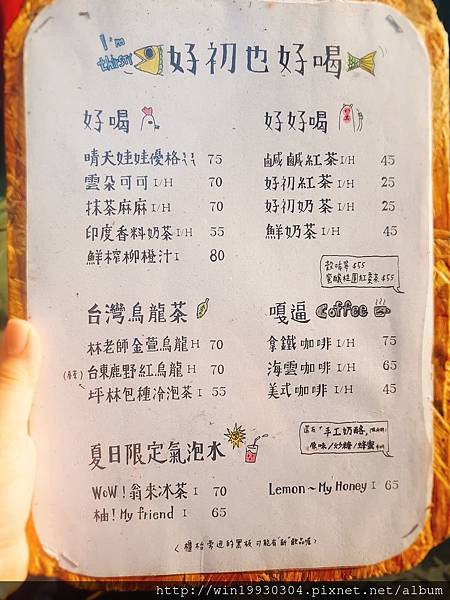 I'm thirsty
好初也好喝
好喝
晴天娃娃優格 75
雲朵可可 I/H 70
抹茶麻麻 I/H 70
印度香料奶茶 I/H 55
鮮榨柳橙汁 I 80
好好喝
鹹鹹紅茶 I/H 45
好初紅茶 I/H 25
好初奶茶 I/H 25
鮮奶茶 I/H 45
台灣烏龍茶
林老師金萱烏龍 H 70
台東鹿野紅烏龍 H 70
坪林包種冷泡茶 I 55
嘎逼 Coffee
拿鐵咖啡 I/H 75
海雲咖啡 I/H 65
美式咖啡 I/H 45
手工奶酪
原味/沙糖/蜂蜜
夏日限定氣泡水
WoW!翁來冰茶 I 70
柚!My friend I 65
Lemon~My Honey I 65
http://win19930304.pixnet.net/album